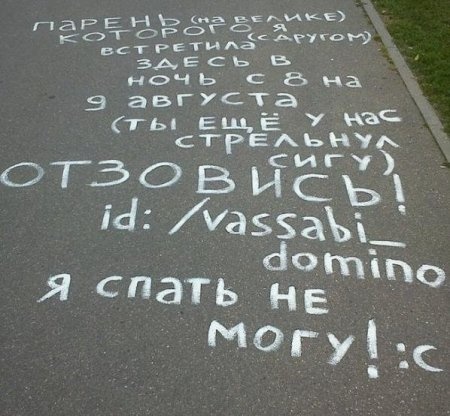 ПАРЕНЬ (НА ВЕЛИКЕ)
КОТОРОГО Я (С ДРУГОМ)
ВСТРЕТИЛА
ЗДЕСЬ В
НОЧЬ С 8 НА
9 АВГУСТА
(ТЫ ЕЩЁ У НАС
СТРЕЛЬНУЛ
СИГУ)
ОТЗОВИСЬ!
id: /vassabi_
domino
Я СПАТЬ НЕ
МОГУ! :с